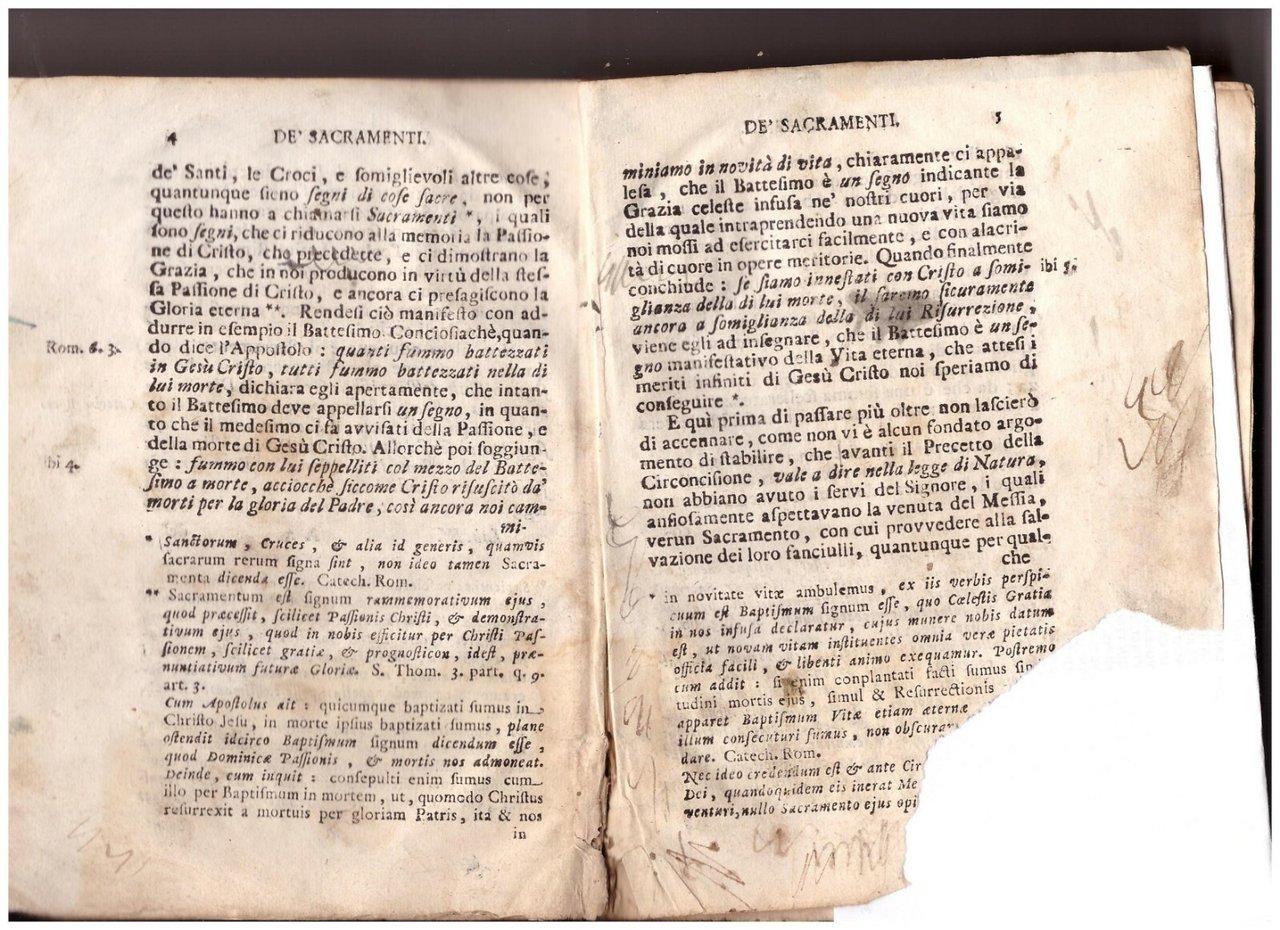 4 DE' SACRAMENTI.
de' Santi, le Croci, e ſomiglievoli altre coſe,
quantunque ſieno ſegni di coſe ſacre, non per
queſto hanno a chiamarſi Sacramenti *, i quali
ſono ſegni, che ci riducono alla memoria la Paſſio-
ne di Criſto, che precedette, e ci dimoſtrano la
Grazia, che in noi producono in virtù della ſteſ-
ſa Paſſione di Criſto, e ancora ci preſagiſcono la
Gloria eterna **. Rendesi ciò manifeſto con ad-
durre in eſempio il Batteſimo. Concioſiachè, quan-
Rom. 6. 3. do dice l'Appoſtolo : quanti fummo battezzati
in Gesù Criſto, tutti fummo battezzati nella di
lui morte, dichiara egli apertamente, che intan-
to il Batteſimo deve appellarſi un ſegno, in quan-
to che il medeſimo ci fà avviſati della Paſſione, e
della morte di Gesù Criſto. Allorchè poi ſoggiun-
ibi 4. ge : fummo con lui ſeppelliti col mezzo del Batte-
ſimo a morte, acciocchè ſiccome Criſto riſuſcitò da'
morti per la gloria del Padre, così ancora noi cam-
mi-
* Sanctorum, Cruces, & alia id generis, quamvis
ſacrarum rerum ſigna ſint, non ideo tamen Sacra-
menta dicenda eſſe. Catech. Rom.
** Sacramentum eſt ſignum rammemorativum ejus,
quod præceſſit, ſcilicet Paſſionis Chriſti, & demonſtra-
tivum ejus, quod in nobis efficitur per Chriſti Paſ-
ſionem, ſcilicet gratiæ, & prognoſticon, ideſt, præ-
nuntiativum futuræ Gloriæ. S. Thom. 3. part. q. 9.
art. 3.
Cum Apoſtolus ait : quicumque baptizati ſumus in
Chriſto Jeſu, in morte ipſius baptizati ſumus, plane
oſtendit idcirco Baptiſmum ſignum dicendum eſſe,
quod Dominicæ Paſſionis, & mortis nos admoneat.
Deinde, cum inquit : conſepulti enim ſumus cum
illo per Baptiſmum in mortem, ut, quomodo Chriſtus
reſurrexit a mortuis per gloriam Patris, ita & nos
in
DE' SACRAMENTI. 5
miniamo in novità di vita, chiaramente ci appa-
leſa, che il Batteſimo è un ſegno indicante la
Grazia celeſte infuſa ne' noſtri cuori, per via
della quale intraprendendo una nuova vita ſiamo
noi moſſi ad eſercitarci facilmente, e con alacri-
tà di cuore in opere meritorie. Quando finalmente
conchiude : ſe ſiamo inneſtati con Criſto a ſomi- ibi 5.
glianza della di lui morte, il ſaremo ſicuramente
ancora a ſomiglianza della di lui Riſurrezione,
viene egli ad inſegnare, che il Batteſimo è un ſe-
gno manifeſtativo della Vita eterna, che atteſi i
meriti infiniti di Gesù Criſto noi ſperiamo di
conſeguire *.
E quì prima di paſſare più oltre non laſcierò
di accennare, come non vi è alcun fondato argo-
mento di ſtabilire, che avanti il Precetto della
Circonciſione, vale a dire nella legge di Natura,
non abbiano avuto i ſervi del Signore, i quali
anſioſamente aſpettavano la venuta del Meſſia,
verun Sacramento, con cui provvedere alla ſal-
vazione dei loro fanciulli, quantunque per qual-
che
* in novitate vitæ ambulemus, ex iis verbis perſpi-
cuum eſt Baptiſmum ſignum eſſe, quo Cœleſtis Gratia
in nos infuſa declaratur, cujus munere nobis datum
eſt, ut novam vitam inſtituentes omnia veræ pietatis
officia facili, & libenti animo exequamur. Poſtremo
cum addit : ſi enim conplantati facti ſumus
tudini mortis ejus, ſimul & Reſurrectionis
apparet Baptiſmum Vitæ etiam æternæ
illum conſecuturi ſumus, non obſcura
dare. Catech. Rom.
Nec ideo credendum eſt & ante Cir
Dei, quandoquidem eis inerat Me
venturi, nullo Sacramento ejus opi